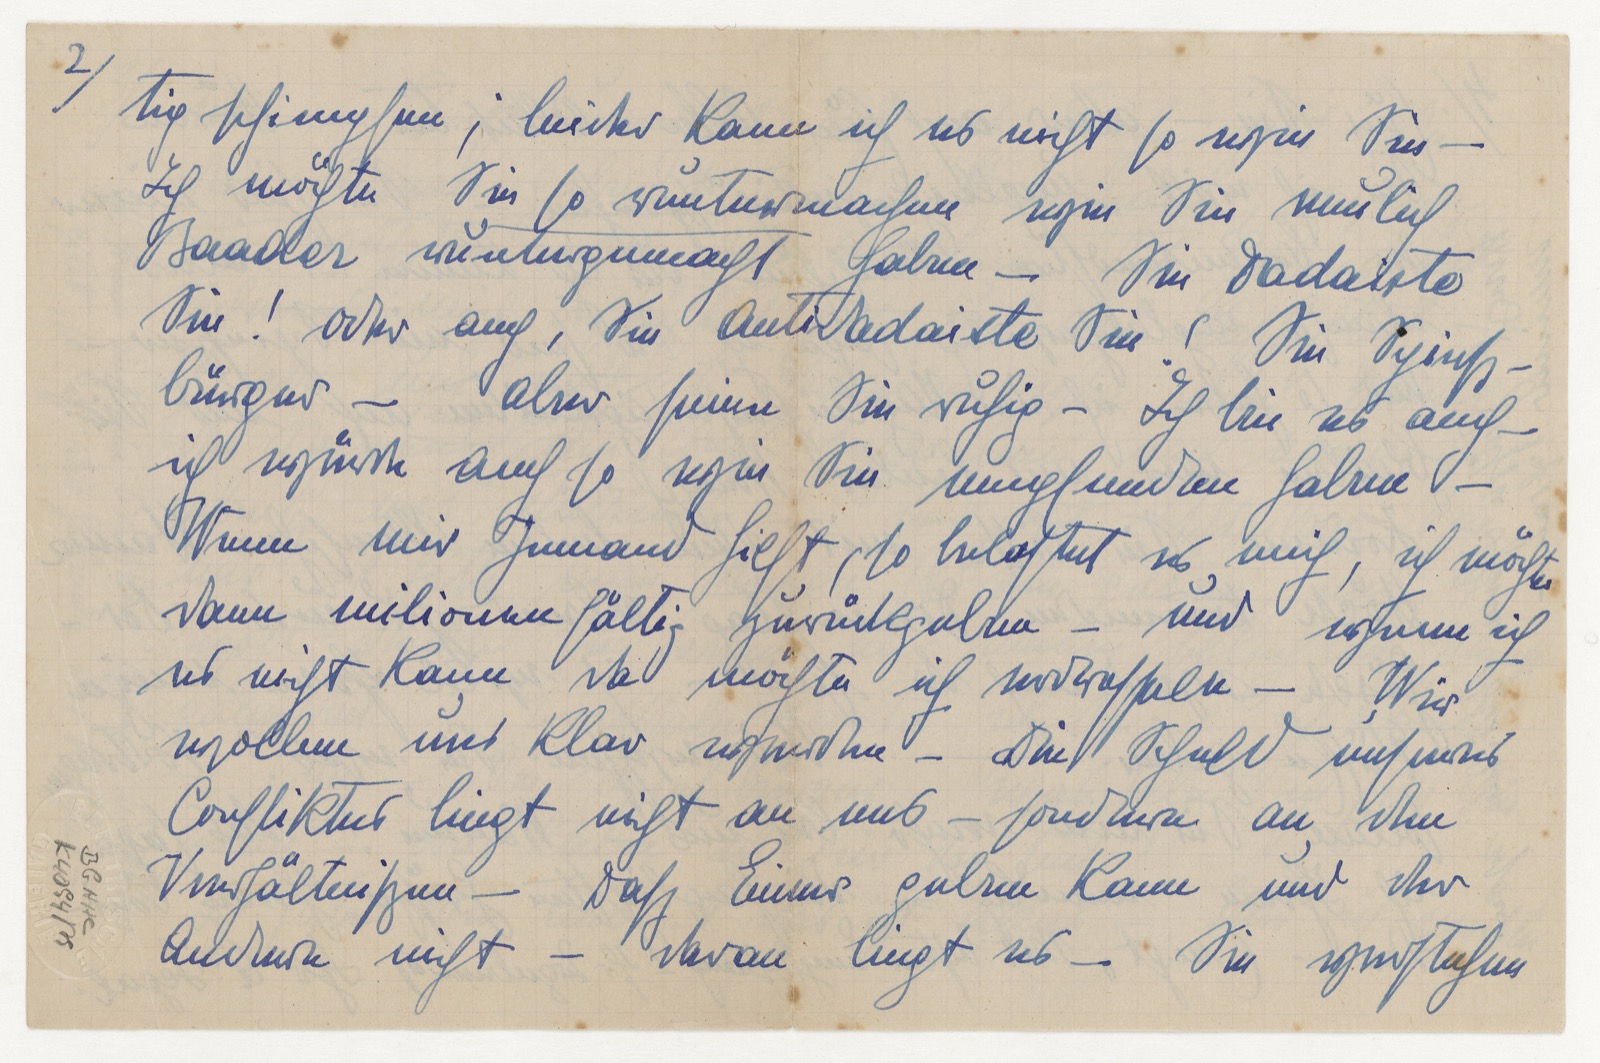 2/
tig schimpfen; leider kann ich es nicht so wie Sie —
Ich möchte Sie so runtermachen wie Sie neulich
Baader runtergemacht haben — Sie Dadaiste
Sie! oder auch, Sie Antidadaiste Sie! Sie Spiess-
bürger — aber seien Sie ruhig — Ich bin es auch —
ich würde auch so wie Sie empfunden haben —
Wenn mir Jemand hilft, so belastet es mich, ich möchte
dann milionenfältig zurückgeben — und wenn ich
es nicht kann da möchte ich
Wir
wollen uns klar werden — Die Schuld unseres
Confliktes liegt nicht an uns — sondern an den
Verhältnißen — Daß Einer geben kann und der
Andere nicht — daran liegt es — Sie verstehen
BG HHC
K4094/75